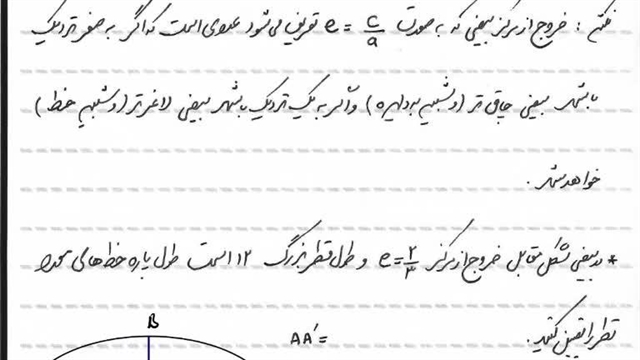 نکته : خروج از مرکز بیضی که به صورت e = c/a تعریف می‌شود عددی است که اگر به صفر نزدیک
باشد بیضی چاق تر (و شبیه به دایره) و اگر به یک نزدیک باشد بیضی لاغرتر (و شبیه خط)
خواهد شد .
* در بیضی شکل مقابل خروج از مرکز e = ۲/۳ و طول قطر بزرگ ۱۲ است طول پاره خط‌های
قطر را تعیین کنید.
B
AA′=